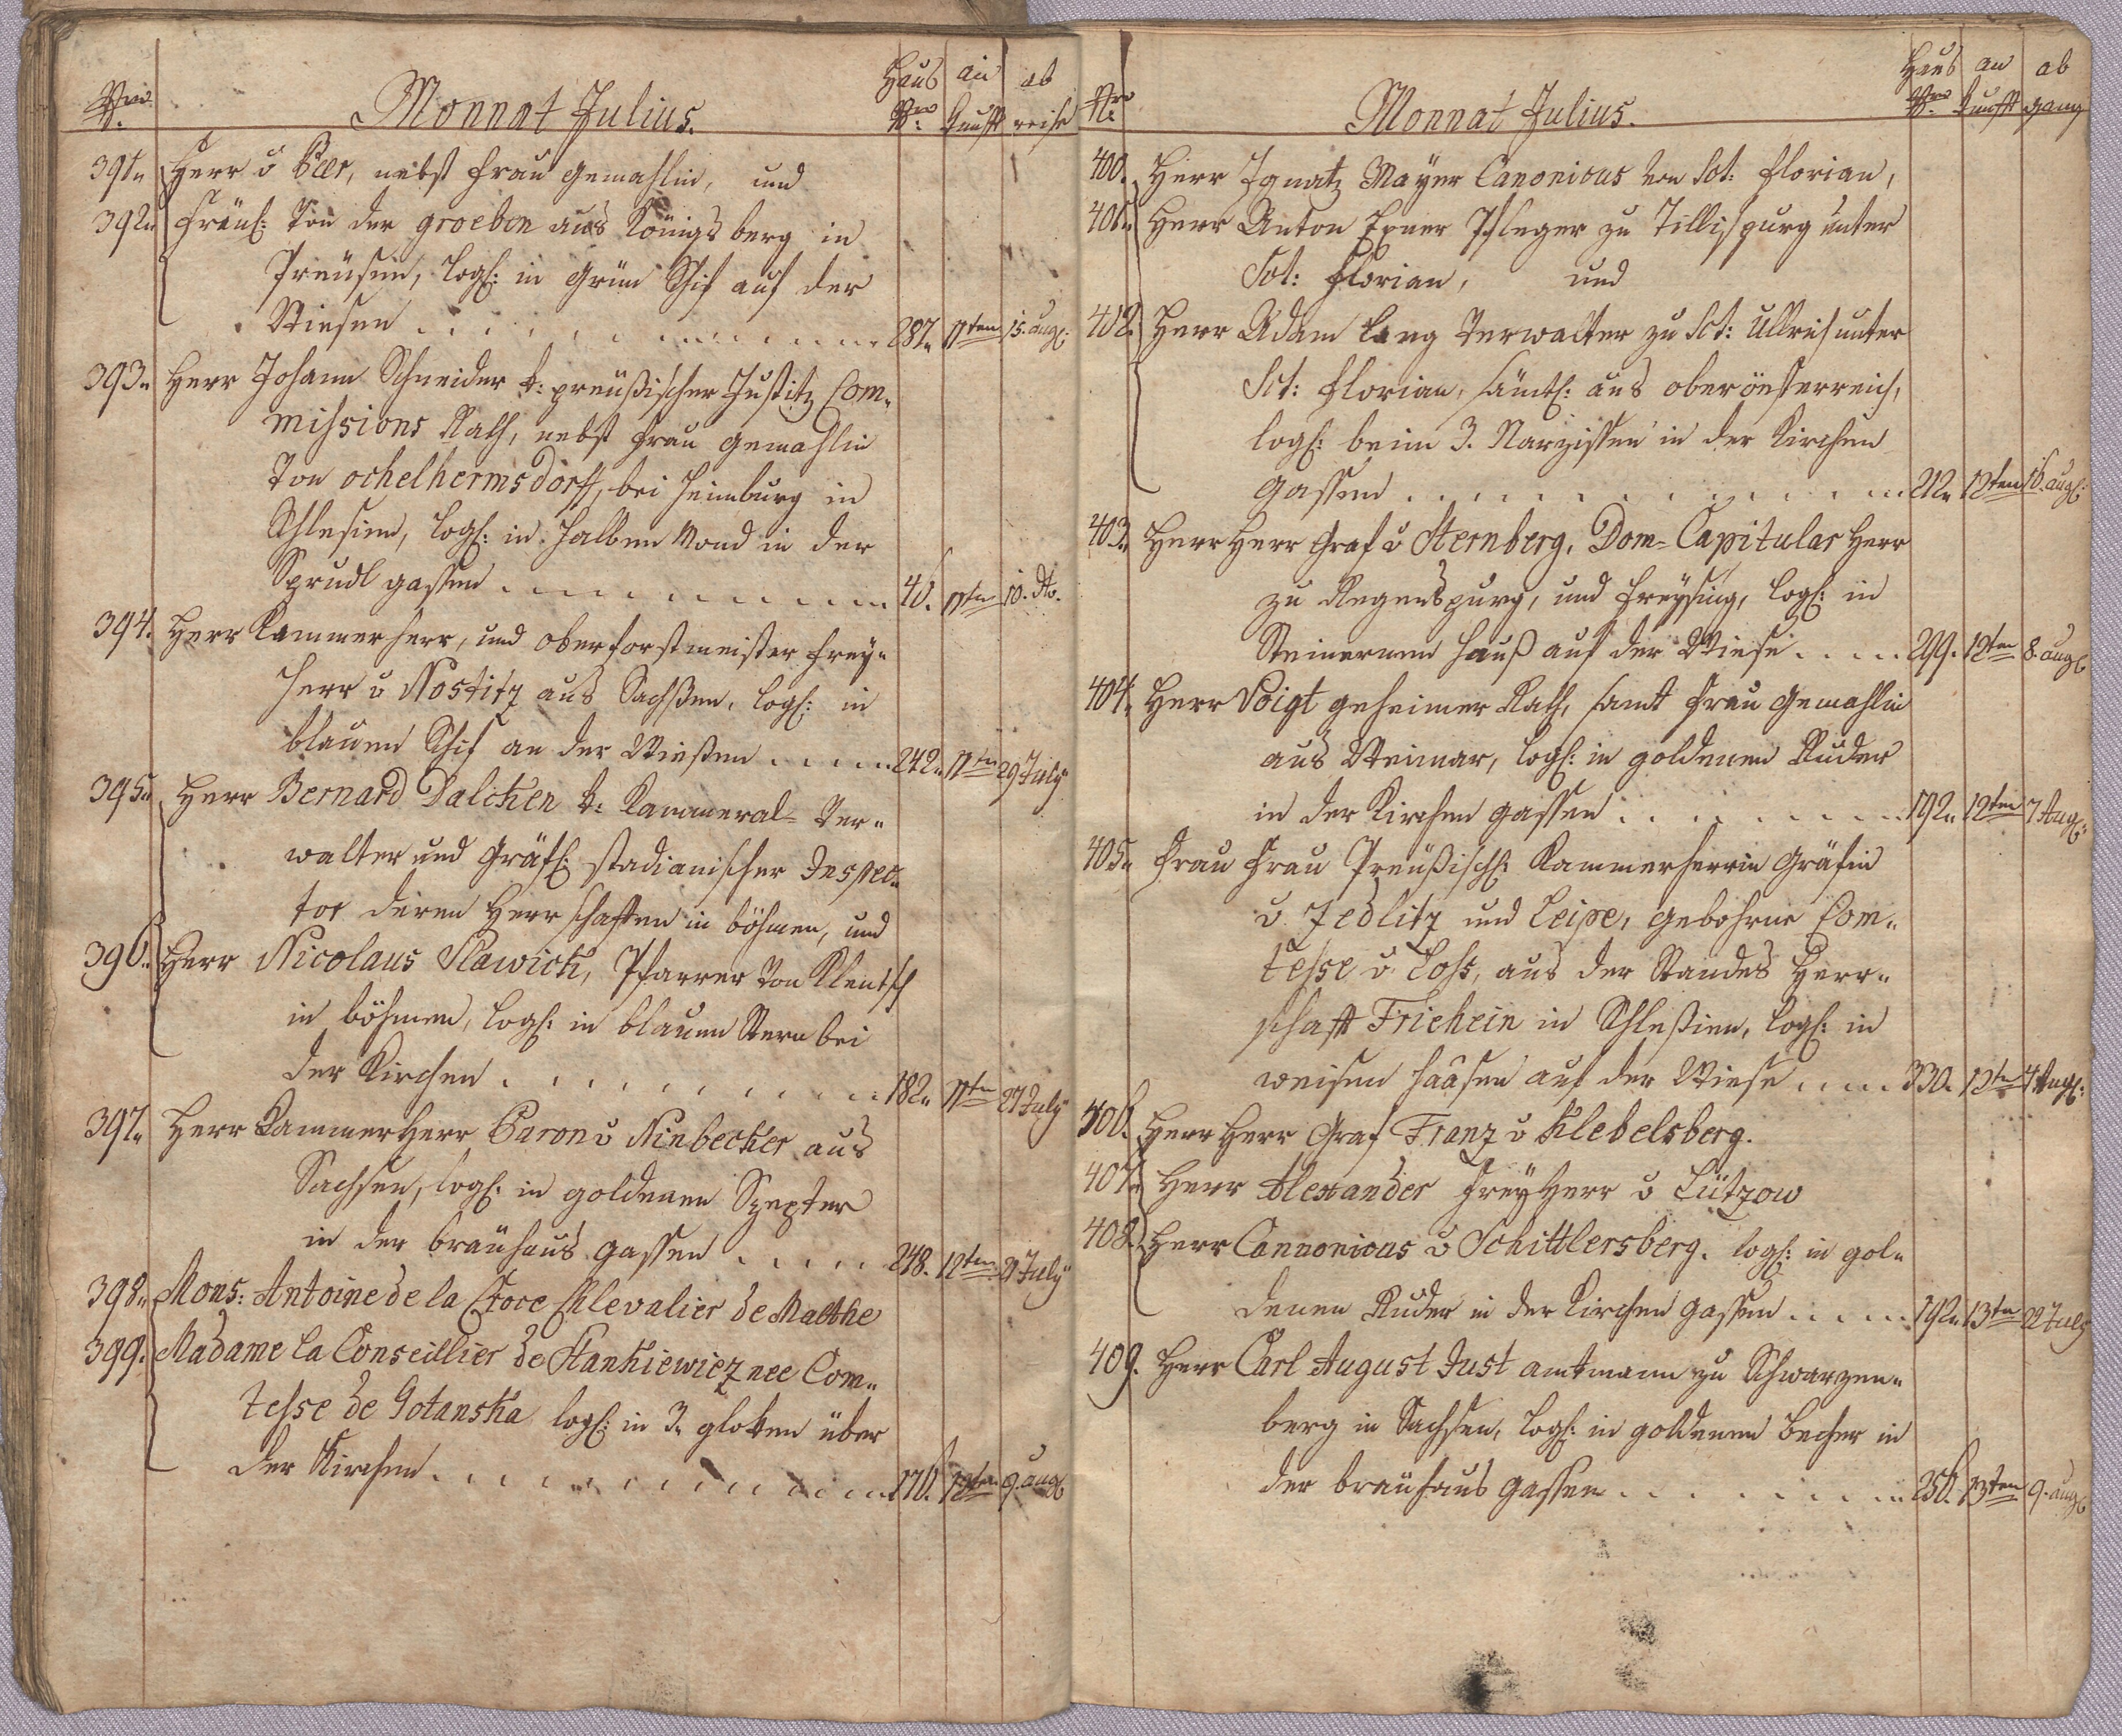 Nro. Monnat Julius. Haus Nro. an Kunft ab reise
391. Herr v Beer, nebst Frau Gemahlin, und
392. Fräul: von der Groeben aus Königsberg in
Preüsen, log: in Grün Schif auf der
Wiesen . . . . 287. 11ten 15. aug:
393. Herr Johann Schneider k: preüßischer Justitz Com-
missions Rath, nebst Frau Gemahlin
von ochelhermsdorff, bei in
Schlesien, log: in halben Mond in der
Sprudl gassen . . . . 40. 11ten 10. dto.
394. Herr Kammerherr, und oberforstmeister Frey-
herr v Nostitz aus Sachßen, log: in
blauen Schif an der Wießen . . . . 242. 11ten 29 July
395. Herr Bernard Dalcken k: Kammeral-Ver-
walter und Gräfl: stadianischer Inspec-
tor deren Herrschaften in böhmen, und
396. Herr Nicolaus Slawick, Pfarrer von Klentsch
in böhmen, log: in blauen Stern bei
der Kirchen . . . . 182. 11ten 27 July
397. Herr Kammerherr Baron v Ninbecker aus
Sachsen, log: in goldenen Szepter
in der bräuhaus gassen . . . . 248. 12ten 21 July
398. Mons: Antoine de la Croce Chlevalier de Malthe
399. Madame la Conseillier de Stankiewicz nee Com-
tesse de Gotanska log: in 3. gloken über
der Kirchen . . . . 176. 12ten 9. aug
Nro. Monnat Julius. Haus Nro. an Kunfft ab gang
400. Herr Ignatz Mayer Canonicus von Sct: Florian,
401. Herr Anton Exner Pfleger zu Tillispurg unter
Sct: Florian, und
402. Herr Adam Lang Verwalter zu Sct: Ullrich unter
Sct: Florian, sämtl: aus oberöesterreich,
log: beim 3. Narzissen in der Kirchen
gassen . . . . 212. 12ten 16. aug:
403. Herr Herr Graf v Sternberg, Dom-Capitular Herr
zu Regenspurg, und Freysing, log: in
Steinernen Hauß auf der Wiese . . . . 299. 12ten 8. aug
404. Herr Voigt geheimer Rath, samt Frau Gemahlin
aus Weimar, log: in goldenen Ruder
in der Kirchen gassen . . . . 192. 12ten 7 Aug:
405. Frau Frau Preüßisch: Kammerherrin Gräfin
v. Zedlitz und Leipe, gebohrne Com-
tesse v. Loss, aus der Standes Herr-
schaft Friehein in Schleßien, log: in
weisen Haasen auf der Wiese . . . . 330. 12ten 4 Aug:
406. Herr Herr Graf Franz v Klebelsberg.
407. Herr Alexander Freyherr v Lützow
408. Herr Cannonicus v Schittlersberg. log: in gol-
denen Ruder in der Kirchen gassen . . . . 192. 13ten 22 July
409. Herr Carl August Just amtmann zu Schwarzen-
berg in Sachsen, log: in goldenen becher in
der bräuhaus gassen . . . . 256. 13ten 9. aug